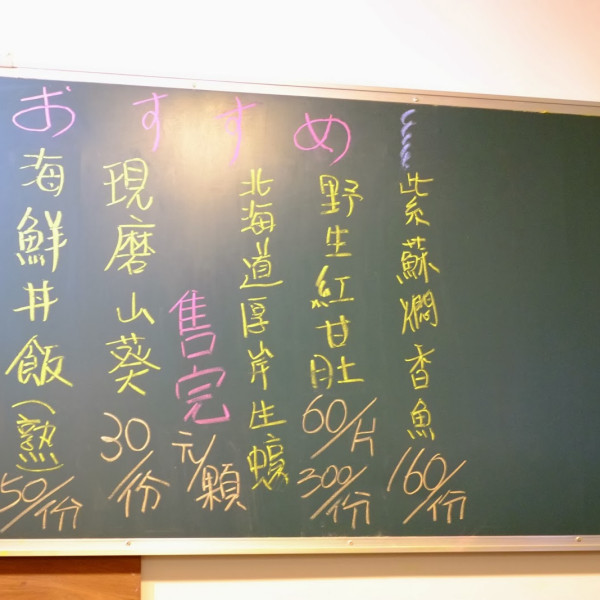 おすすめ
紫蘇燜香魚
160/份
野生紅甘肚
60/片
300/份
北海道厚岸生蠔
售完
元/顆
現磨山葵
30/份
海鮮丼飯(熟)
50/份